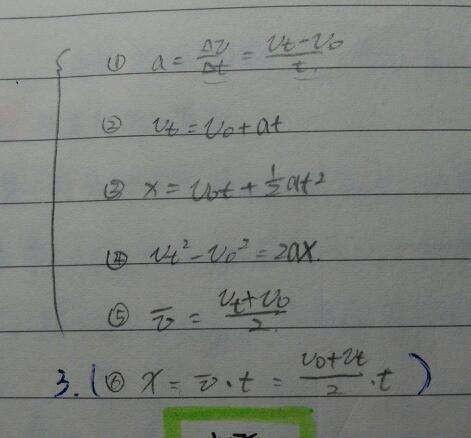 ① a = Δv/Δt = (vt - v0)/t
② vt = v0 + at
③ x = v0t + 1/2 at²
④ vt² - v0² = 2ax
⑤ v̄ = (vt + v0)/2
3. (⑥ x = v̄ · t = (v0 + vt)/2 · t)